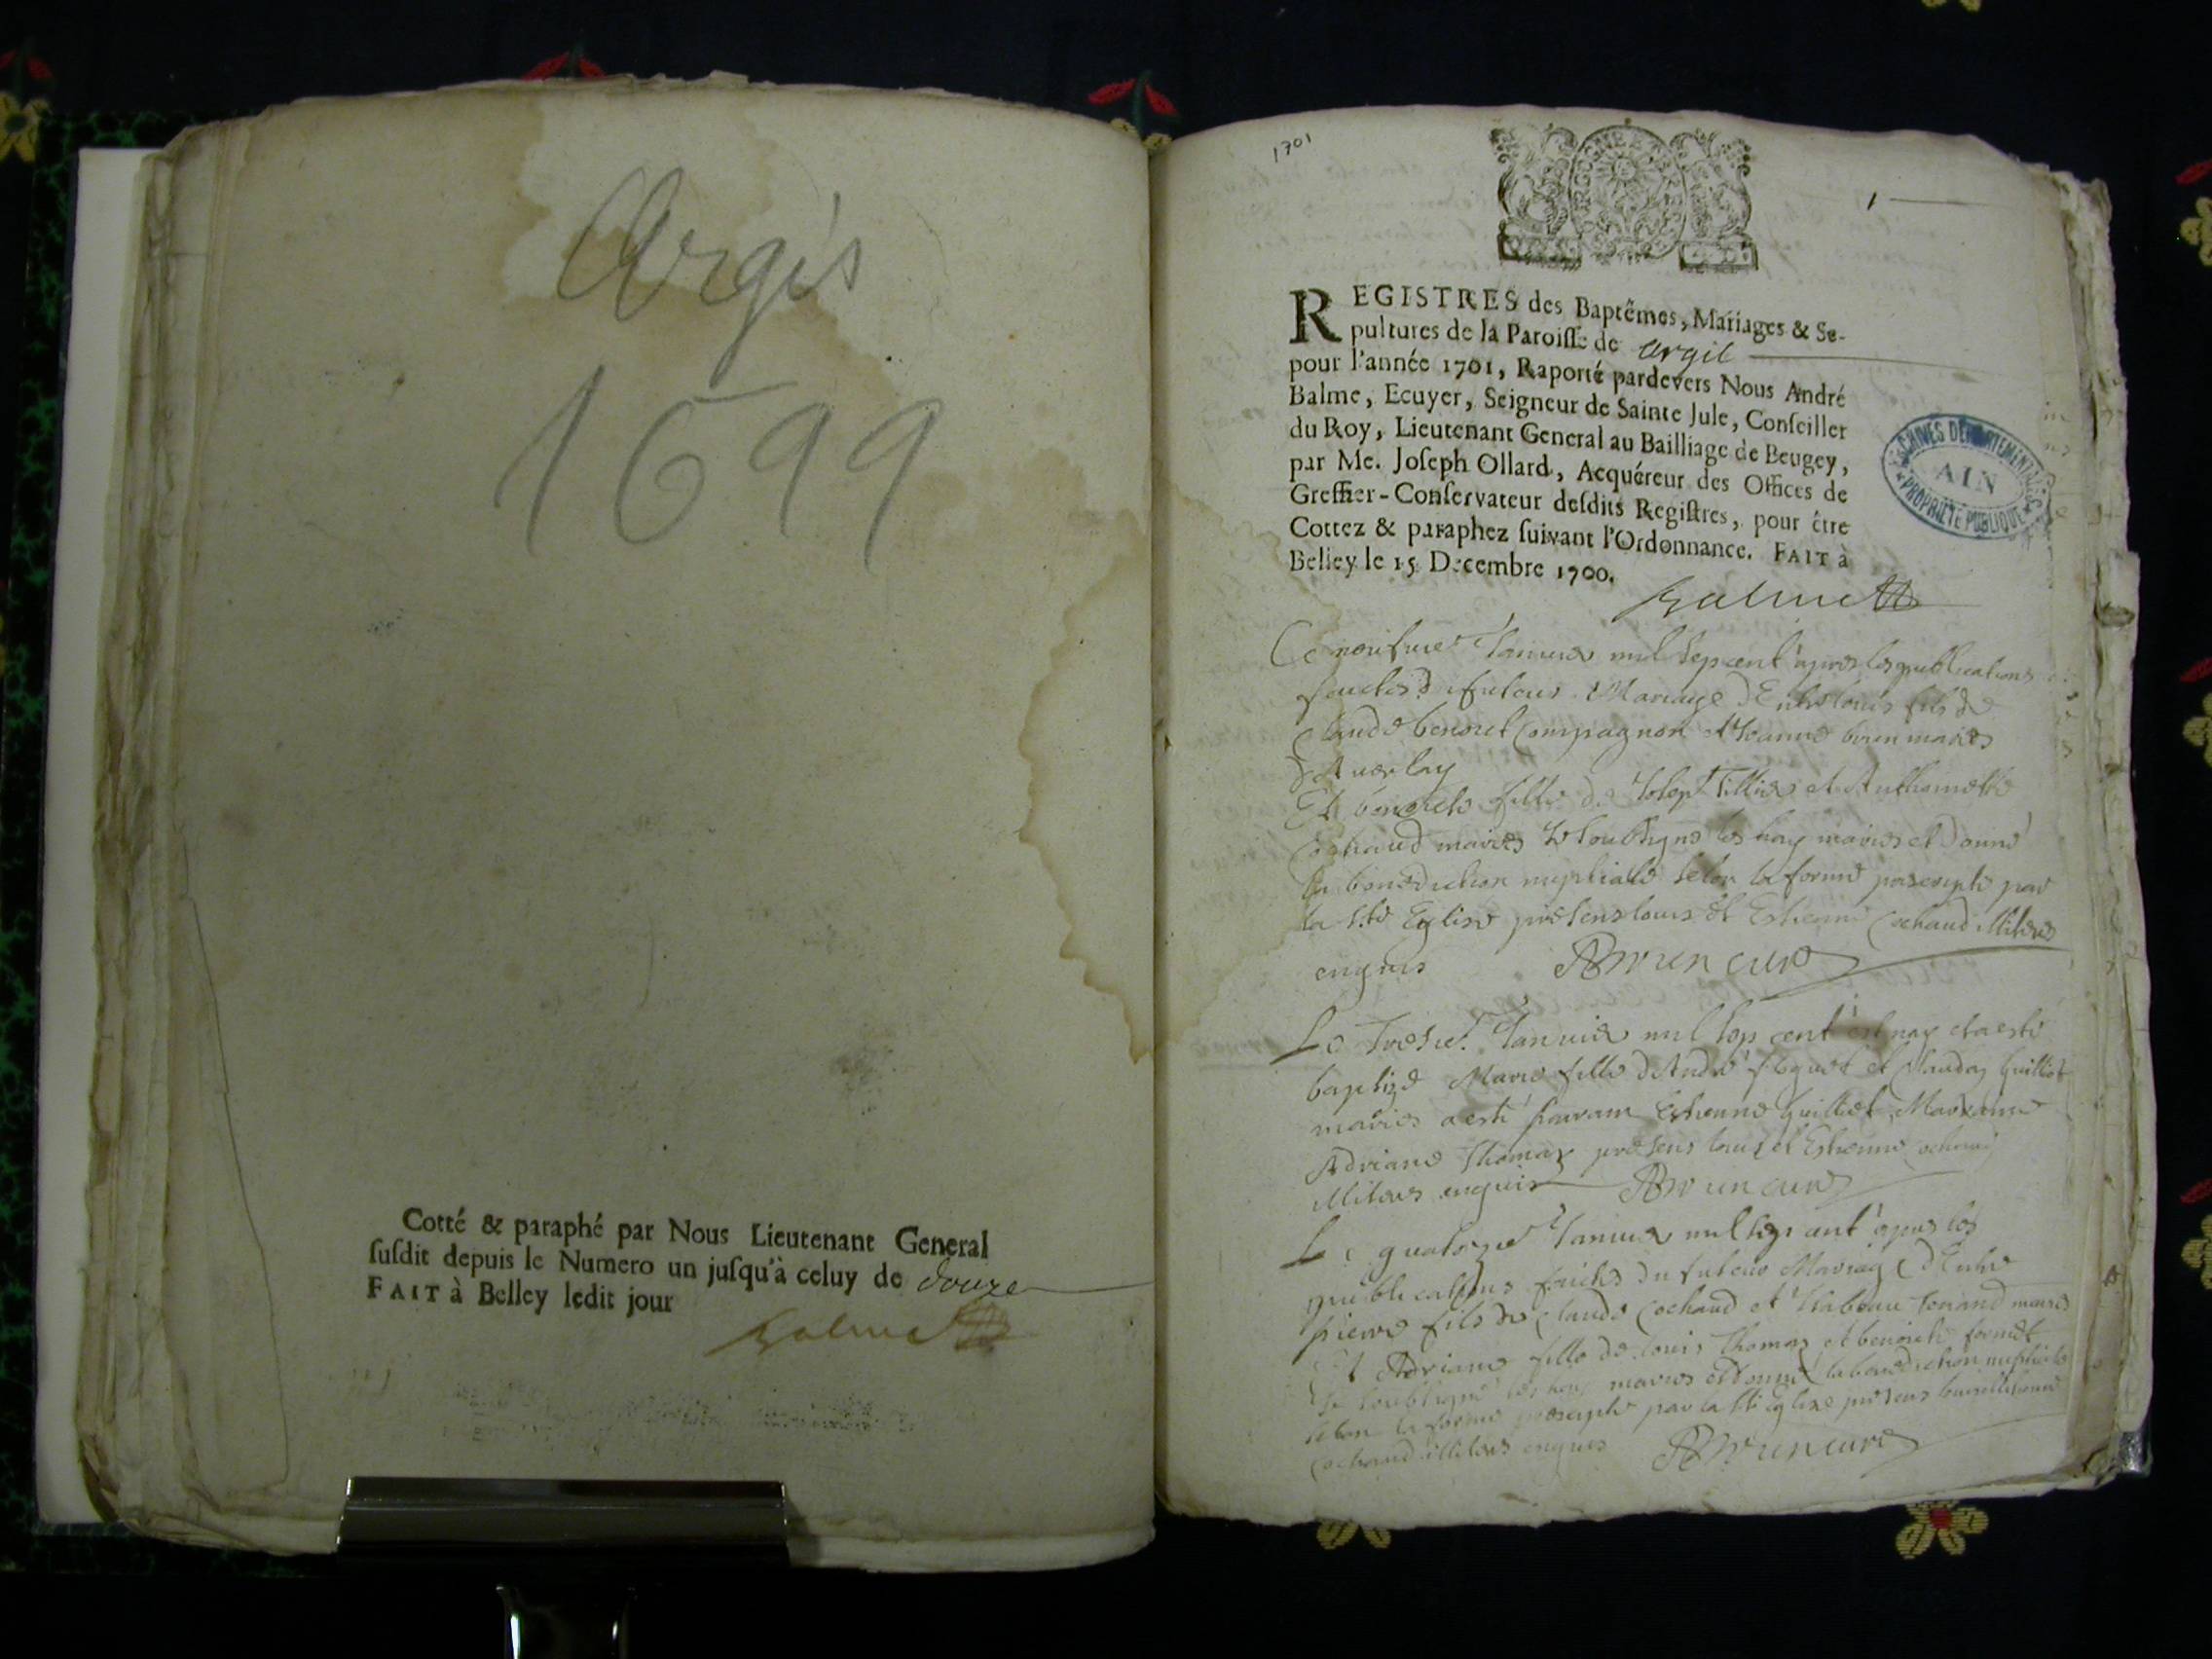 Argis
1699
Cotté & paraphé par Nous Lieutenant General
ſuſdit depuis le Numero un juſqu'à celuy de douze
FAIT à Belley ledit jour
Balme
1701
1
REGISTRES des Baptêmes, Mariages & Se-
pultures de la Paroiſſe de Argil
pour l'année 1701, Raporté pardevers Nous André
Balme, Ecuyer, Seigneur de Sainte Jule, Conſeiller
du Roy, Lieutenant General au Bailliage de Beugey,
par Me. Joſeph Ollard, Acquéreur des Offices de
Greffier-Conſervateur deſdits Regiſtres, pour être
Cottez & paraphez ſuivant l'Ordonnance. FAIT à
Belley le 15 Decembre 1700.
Balme
ARCHIVES DEPARTEMENTALES
AIN
PROPRIETE PUBLIQUE
Ce Janvier mil sep cent apres les publications
du futeur Mariage D'Entre louis fils de
Claude benoict Compagnon et Jeanne maries
Et benoiste fille de Tillier et Anthoinette
Cochaud maries Je soubsigne les hay maries et Donné
la benediction nuptialle selon la forme prescripte par
la Ste Eglise presens louis et Estienne Cochaud illiteres
enquis curé
Le Janvier mil sep cent est nay et a esté
baptize Marie fille D'André et Claudaz Guilliot
maries a esté parrain Estienne Guilliot Marrainne
Adriane Thomaz presens louis et Estienne Cochaud
illiteres enquis curé
Le quatorze Janvier mil sep cent apres les
publications faictes du futeur Mariage D'Entre
pierre fils de Claude Cochaud et maries
Et Adriane fille de louis Thomaz et benoiste
Je soubsigne les hay maries et Donné la benediction nuptialle
selon la forme prescripte par la Ste Eglise presens louis et Estienne
Cochaud illiteres enquis curé